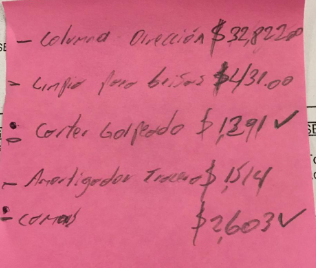 - Columna Dirección $32,822.00
- Limpia para brisas $431.00
- Carter Golpeado $1,291 ✓
- Amortiguador Trasero $1,514
- Comas $2,603 ✓